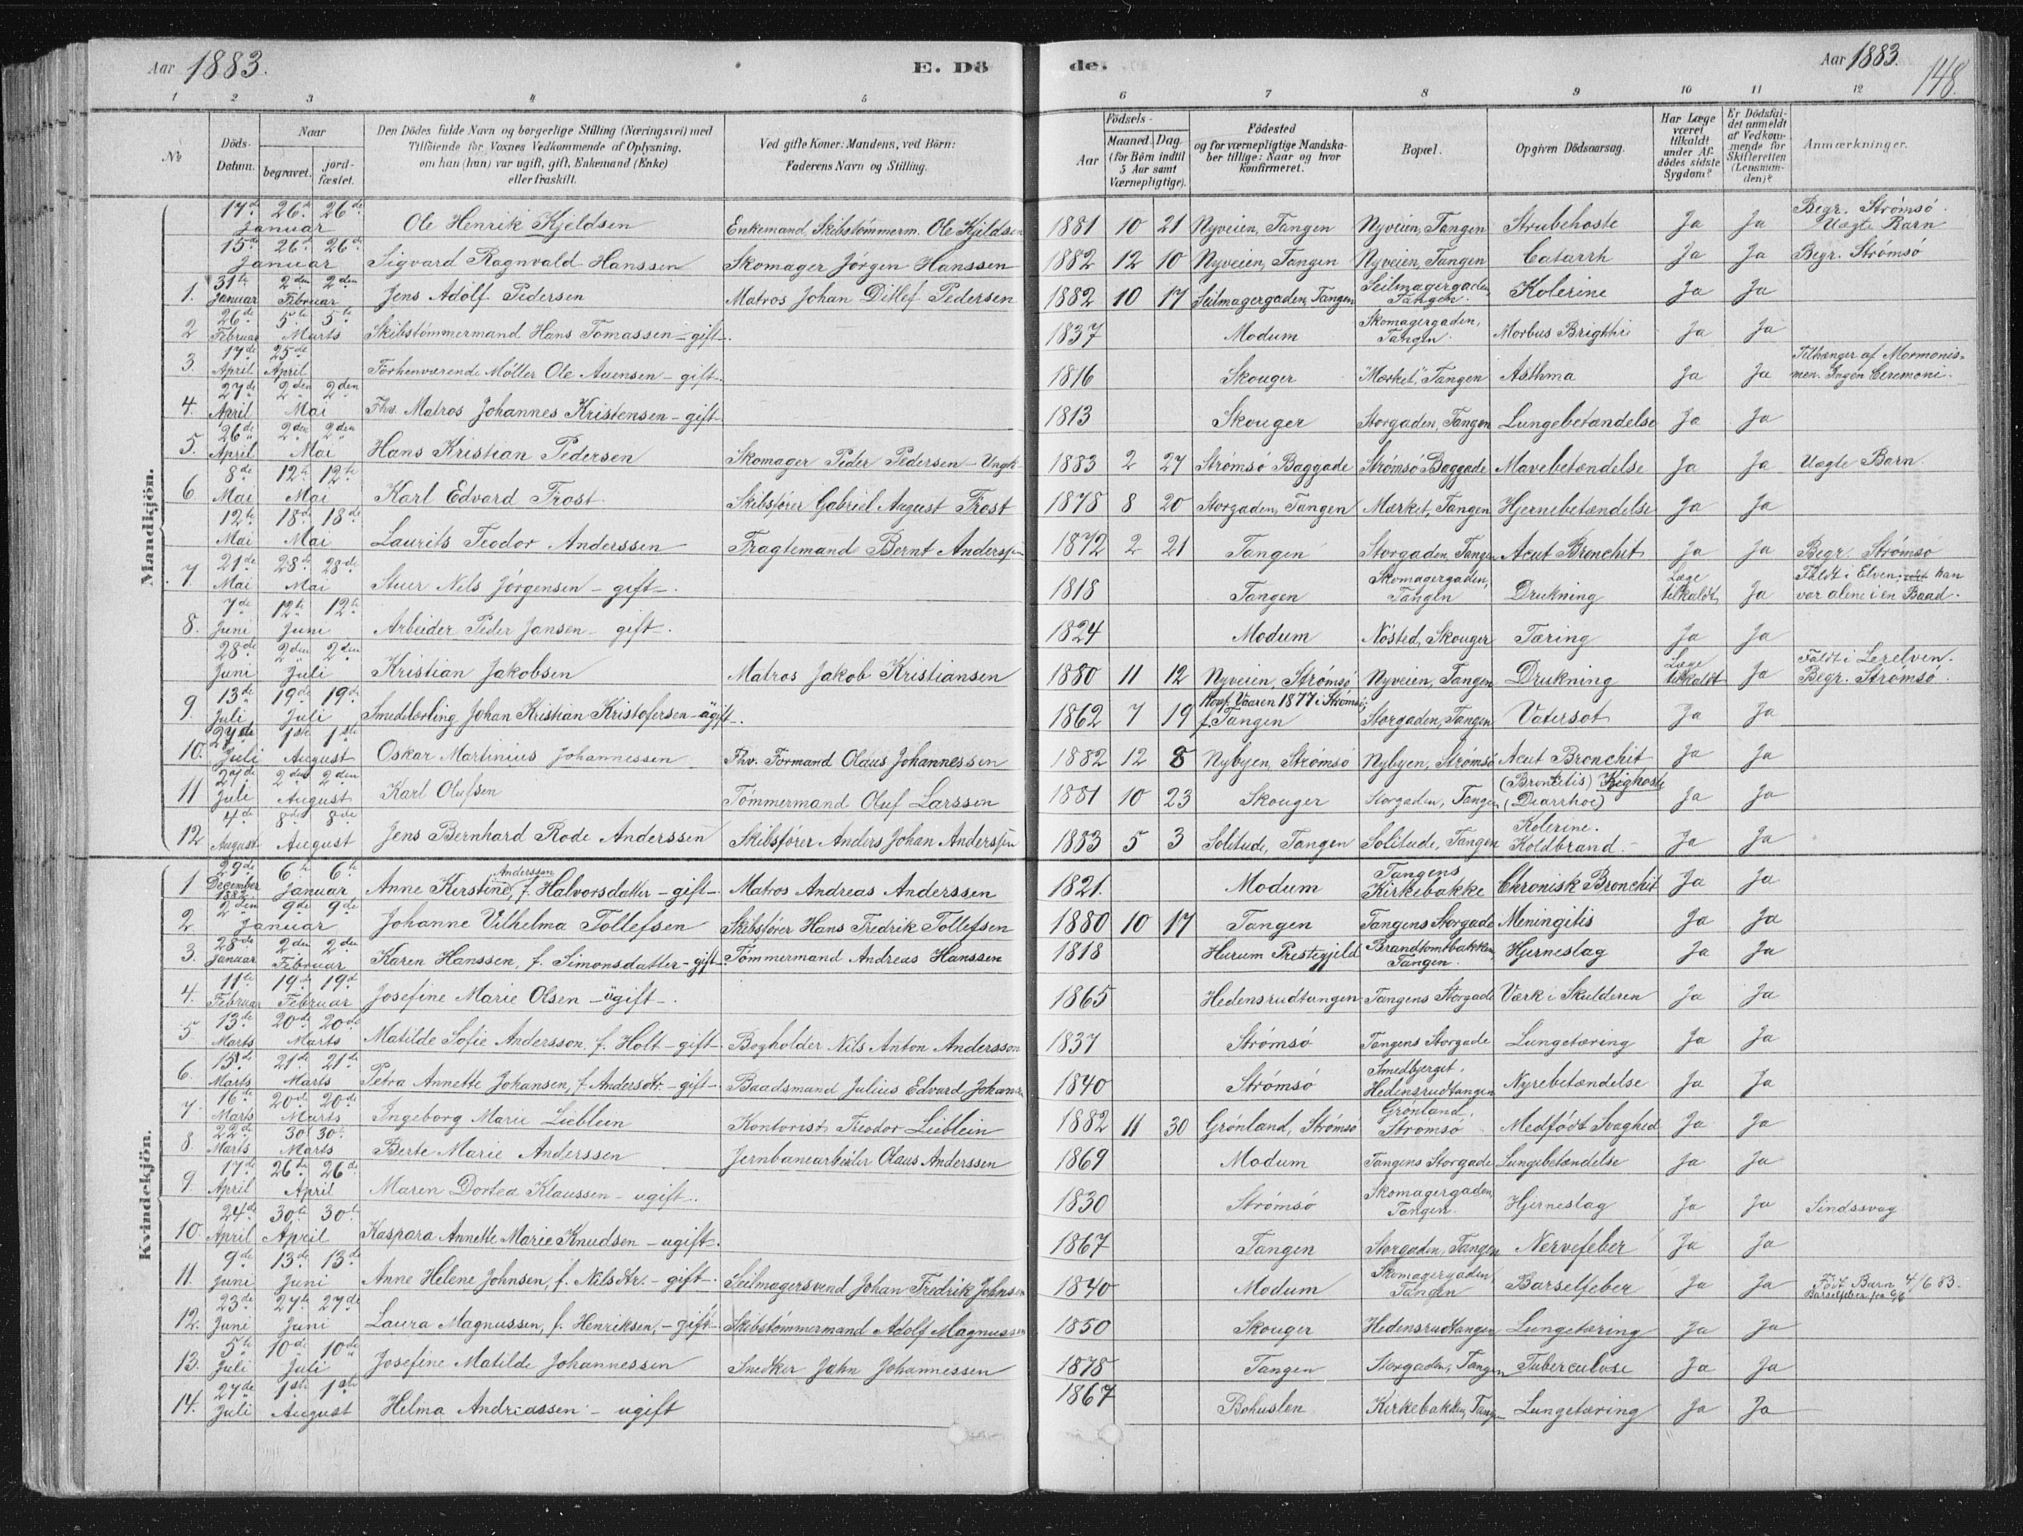 Aar 1883. E. Dö de. Aar 1883. 148.
1 2 3 4 5 6 7 8 9 10 11 12
No
Döds-Datum.
Naar
begravet.
jord-fæstet.
Den Dödes fulde Navn og borgerlige Stilling (Næringsvei) med
Tilföiende for Voxnes Vedkommende af Oplysning,
om han (hun) var ugift, gift, Enkemand (Enke)
eller fraskilt.
Ved gifte Koner: Mandens, ved Börn:
Faderens Navn og Stilling.
Födsels-
Aar
Maaned. Dag.
(for Börn indtil
5 Aar samt
Værnepligtige).
Födested
og for værnepligtige Mandska-
ber tillige: Naar og hvor
konfirmeret.
Bopæl.
Opgiven Dödsaarsag.
Har Læge
været
tilkaldt
under Af-
dödes sidste
Sygdom?
Er Dödsfal-
det anmeldt
af Vedkom-
mende for
Skifteretten
(Lensman-
den)?
Anmærkninger.
Mandkjön.
17de Januar 26de 26de Ole Henrik Kjeldsen Enkemand Skibstømmerm. Ole Kjeldsen 1881 10 21 Nyveien, Tangen Nyveien, Tangen Strubehoste Ja Ja Begr. Strømsø. Uægte Barn
15de Januar 26de 26de Sigvard Ragnvald Hanssen Skomager Jørgen Hanssen 1882 12 10 Nyveien, Tangen Nyveien, Tangen Catarrh Ja Ja Begr. Strømsø
1. 31te Januar 2den 2den Februar Jens Adolf Pedersen Matros Johan Ditlef Pedersen 1882 10 17 Seilmagergaden, Tangen Seilmagergaden, Tangen. Kolerine Ja Ja
2 26de Februar 5te 5te Marts Skibstømmermand Hans Tomassen - gift -. 1837 Modum Skomagergaden, Tangen. Morbus Brightii Ja Ja
3. 17de April 25de April Forhenværende Møller Ole Auensen - gift -. 1816 Skouger "Mærket", Tangen Asthma Ja Ja Tilhænger af Mormonis-men. Ingen Ceremoni.
4. 27de April 2den 2den Mai Fhv. Matros Johannes Kristensen - gift - 1813 Skouger Storgaden, Tangen Lungebetændelse Ja Ja
5. 26de April 2den 2den Mai Hans Kristian Pedersen Skomager Peder Pedersen - Ungk. 1883 2 27 Strømsø Baggade Strømsø Baggade Mavebetændelse Ja Ja Uægte Barn.
6 8de Mai 12te 12te Mai Karl Edvard Frost. Skibsfører Gabriel August Frost 1878 8 20 Storgaden, Tangen Mærket, Tangen Hjernebetændelse Ja Ja
12te Mai 18de 18de Mai Laurits Teodor Anderssen Fragtemand Bernt Anderssen 1872 2 21 Tangen Storgaden, Tangen Acut Bronchit Ja Ja Begr. Strømsø
7 21de Mai 28de 28de Mai Stuer Nils Jørgensen - gift -. 1818 Tangen Skomagergaden, Tangen Drukning Læge tilkaldt Ja Faldt i Elven, han var alene i en Baad.
8. 7de Juni 12te 12te Juni Arbeider Peder Jansen - gift. 1824 Modum Nøsted, Skouger Tæring Ja Ja
28de Juni 2den 2den Juli Kristian Jakobsen Matros Jakob Kristiansen 1880 11 12 Nyveien, Strømsø Nyveien, Tangen Drukning Læge tilkaldt Ja Faldt i Lerelven. Begr. Strømsø.
9 13de Juli 19de 19de Juli Smedelærling Johan Kristian Kristofersen - ugift -. 1862 7 19 Konf. Vaaren 1877 i Strømsø, f. Tangen Storgaden, Tangen Vatersot Ja Ja
10. 27de Juli 1ste 1ste August Oskar Martinius Johannessen Fhv. Formand Olaus Johannessen 1882 12 8 Nybyen, Strømsø Nybyen, Strømsø Acut Bronchit Ja Ja
11 27de Juli 2den 2den August Karl Olufsen Tømmermand Oluf Larssen 1881 10 23 Skouger Storgaden, Tangen (Bronkitis) Kighoste (Diarrhoe) Ja Ja
12 4de August 8de 8de August Jens Bernhard Rode Anderssen Skibsfører Anders Johan Anderssen 1883 5 3 Solitude, Tangen Solitude, Tangen Kolerine. Koldbrand. Ja Ja
Kvindekjön.
1 29de December 1882 6te 6te Januar Anne Kirstine Anderssen, f. Halvorsdatter - gift - Matros Andreas Anderssen 1821. Modum Tangens Kirkebakke Chronisk Bronchit Ja Ja
2. 2den Januar 9de 9de Johanne Vilhelma Tollefsen Skibsfører Hans Fredrik Tollefsen 1880 10 17 Tangen Tangens Storgade Meningitis Ja Ja
3. 28de Januar 2den 2den Februar Karen Hanssen, f. Simonsdatter - gift - Tømmermand Andreas Hanssen 1818 Hurum Prestegjeld Brandtomtbakken, Tangen. Hjerneslag Ja Ja
4. 11te Februar 19de 19de Februar Josefine Marie Olsen - ugift -. 1865 Hedensrudtangen Tangens Storgade Værk i Skulderen Ja Ja
5 13de Marts 20de 20de Marts Matilde Sofie Andersson, f. Holt - gift - Bogholder Nils Anton Andersson 1837 Strømsø Tangens Storgade Lungetæring Ja Ja
6. 15de Marts 21de 21de Marts Petra Annette Johansen, f. Andersdtr. - gift -. Baadsmand Julius Edvard Johans 1840 Strømsø Smedbjerget, Hedensrudtangen Nyrebetændelse Ja Ja
7. 16de Marts 20de 20de Marts Ingeborg Marie Lieblein Kontorist Teodor Lieblein 1882 11 30 Grønland, Strømsø Grønland, Strømsø Medfødt Svaghed Ja Ja
8. 22de Marts 30. 30. Marts Berte Marie Anderssen Jernbanearbeider Olaus Anderssen 1869 Modum Tangens Storgade Lungebetændelse Ja Ja
9. 17de April 26te 26de April Maren Dortea Klaussen - ugift -. 1830 Strømsø Skomagergaden, Tangen. Hjerneslag Ja Ja Sindssvag
10. 24de April 30te 30te April Kaspara Annette Marie Knudsen - ugift -. 1867 Tangen Storgaden, Tangen Nervefeber Ja Ja
11. 9de Juni 13de 13de Juni Anne Helene Johnsen, f. Nilsdtr. - gift -. Seilmagersvend Johan Fredrik Johnsen 1840 Modum Skomagergaden, Tangen Barselfeber Ja Ja Født Barn 4/6 83. Barselfeber fra 6/6
12. 23de Juni 27te 27de Juni Laura Magnussen, f. Henriksen, - gift - Skibstømmermand Adolf Magnussen 1850 Skouger Hedensrudtangen Lungetæring Ja Ja
13. 5te Juli 10de 10de Juli Josefine Matilde Johannessen Snedker John Johannessen 1878 Tangen Storgaden, Tangen Tuberculose Ja Ja
14. 27de Juli 1ste 1ste August Helma Andriassen - ugift 1867 Bohuslen Kirkebakken, Tang- Lungetæring Ja Ja